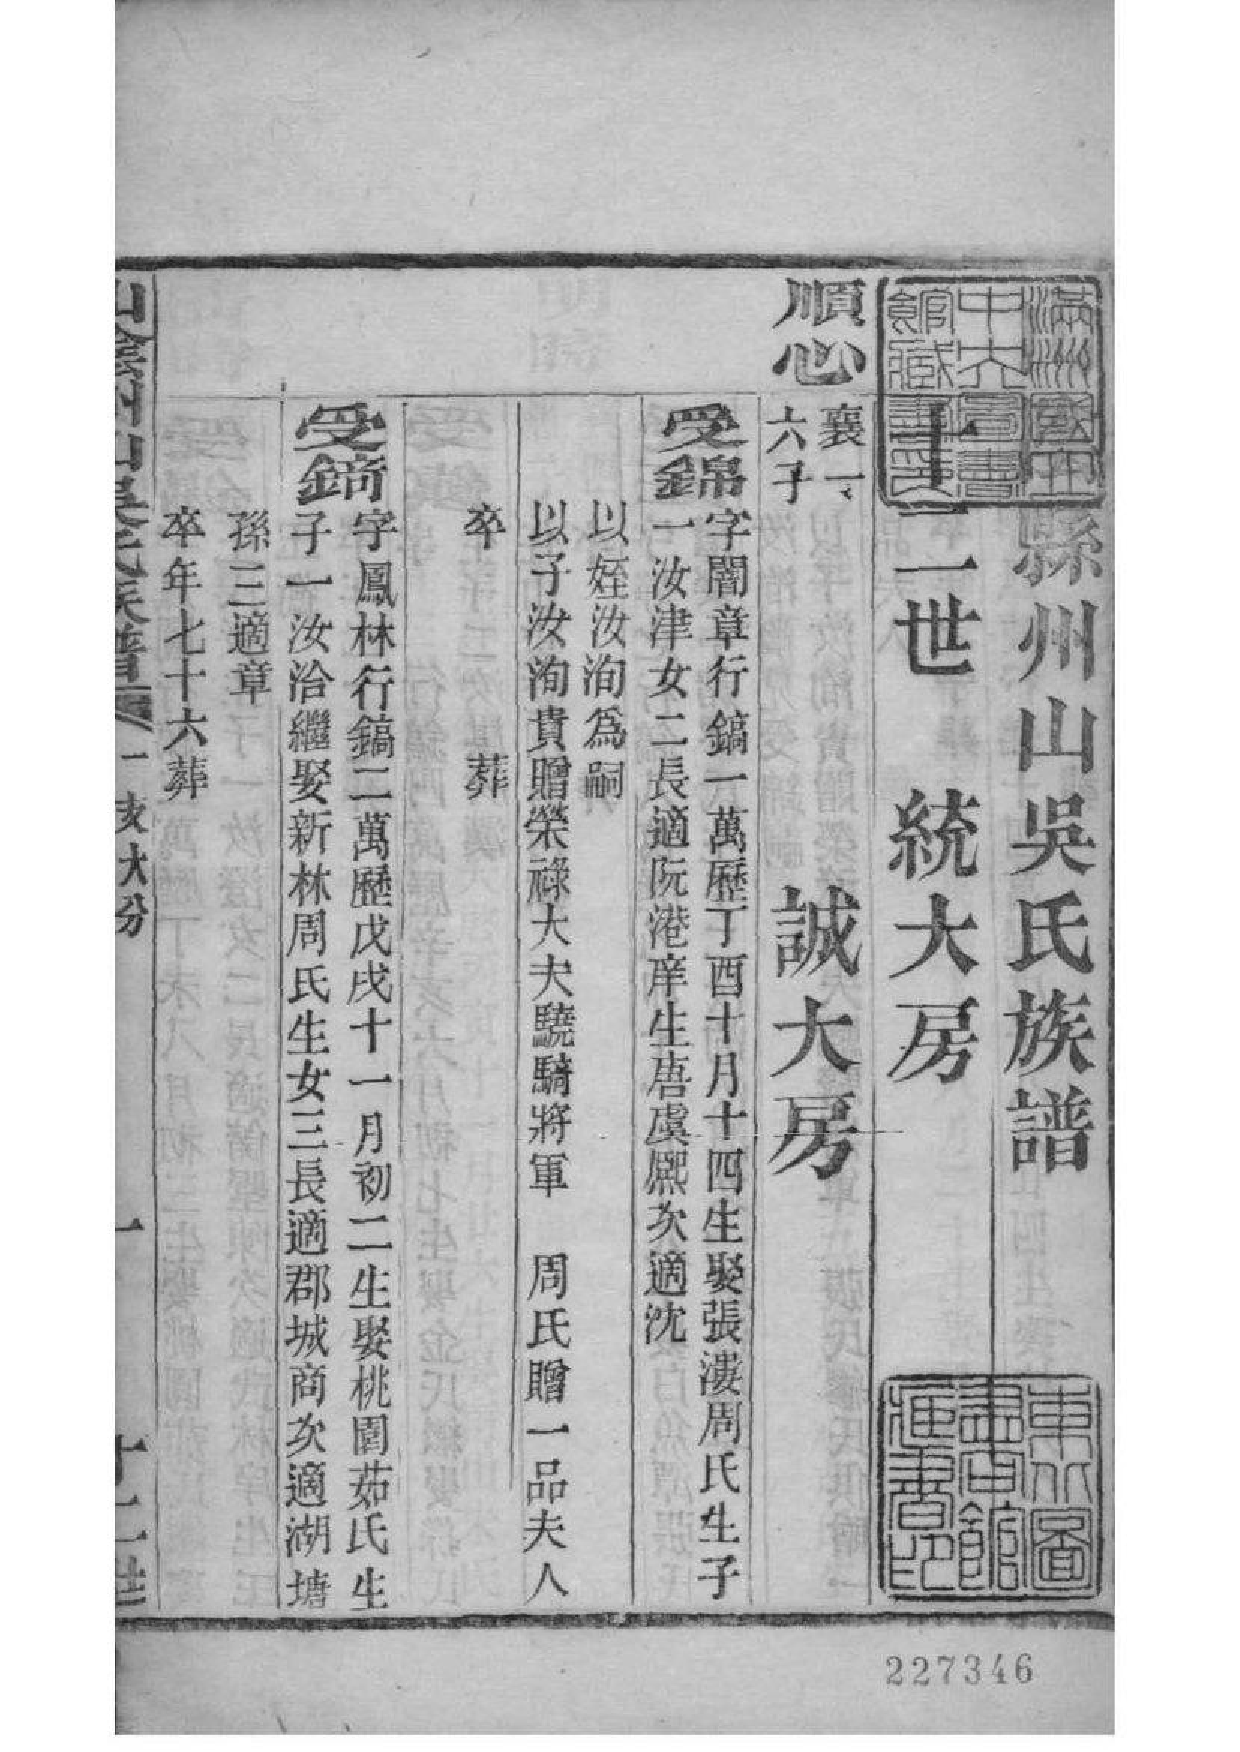 縣州山吳氏族譜
十二世　統大房
順心　襄一、六子　誠大房
受錦　字闇章行鎬一萬歷丁酉十月十四生娶張漊周氏生子
一汝津女二長適阮港庠生唐虞熈次適沈
以姪汝洵為嗣
以子汝洵貴贈榮祿大夫驍騎將軍　周氏贈一品夫人
卒　葬
受鏑　字鳳林行鎬二萬歷戊戌十一月初二生娶桃園茹氏生
子一汝洽繼娶新林周氏生女三長適郡城商次適湖塘
孫三適章
卒年七十六葬
山陰州山吳氏族譜　一支大分　一　十二世
滿洲國立中央圖書館藏書
東北圖書館
227346